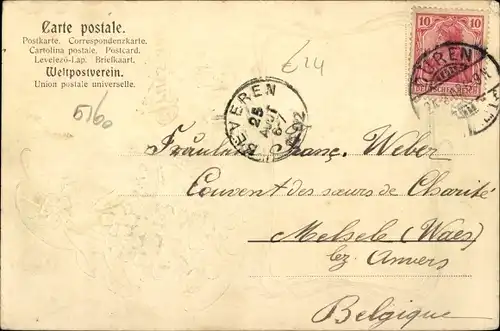 Carte postale.
Postkarte. Correspondenzkarte.
Cartolina postale. Postcard.
Levelező-Lap. Briefkaart.
Weltpostverein.
Union postale universelle.
5/60
10 10
DEUTSCHES REICH
DÜREN
BEVEREN
25
AOUT
6-7
Fräulein Franç. Weber
Couvent des sœurs de Charité
Melsele (Waes)
bz. Anvers
Belgique